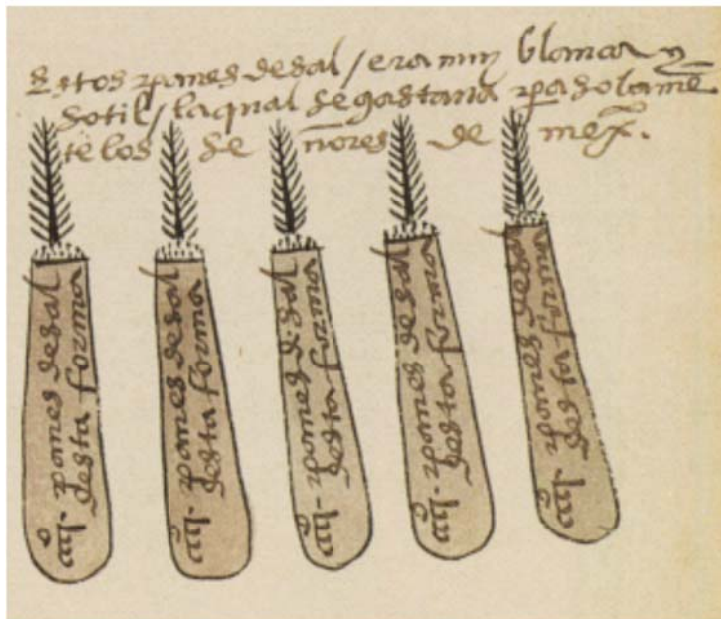 estos panes de sal / era muy blanca y
sotil / la qual se gastava pa solamē
te los se ñores de mexº.
iiijᶜ. panes de sal
desta forma
iiijᶜ. panes de sal
desta forma
iiijᶜ. panes d sal
desta forma
iiijᶜ. panes de sal
desta forma
iiijᶜ. panes de sal
desta forma